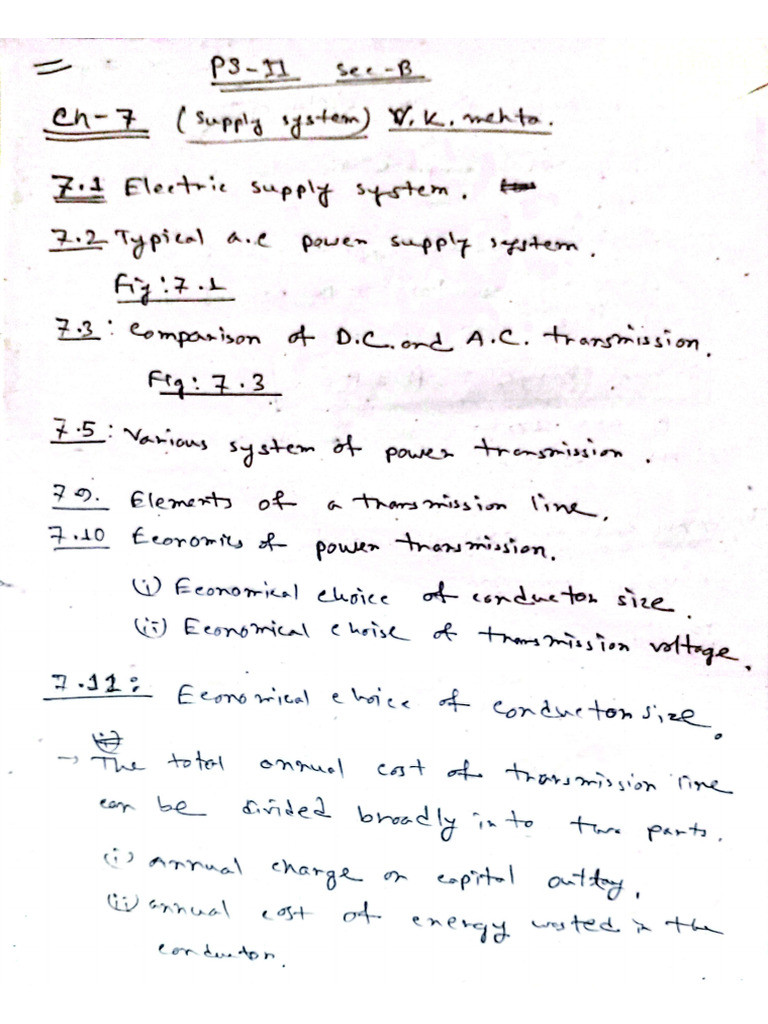 PS-II Sec-B
Ch-7 (Supply system) V.K. mehta.
7.1 Electric supply system.
7.2 Typical a.c power supply system.
Fig:7.1
7.3: Comparison of D.C. and A.C. transmission.
Fig: 7.3
7.5: Various system of power transmission.
7.9. Elements of a transmission line.
7.10 Economics of power transmission.
(i) Economical choice of conductor size.
(ii) Economical choise of transmission voltage.
7.11: Economical choice of conductor size.
→ The total annual cost of transmission line
can be divided broadly in to two parts.
(i) annual charge on capital outlay.
(ii) annual cost of energy wasted in the
conductor.